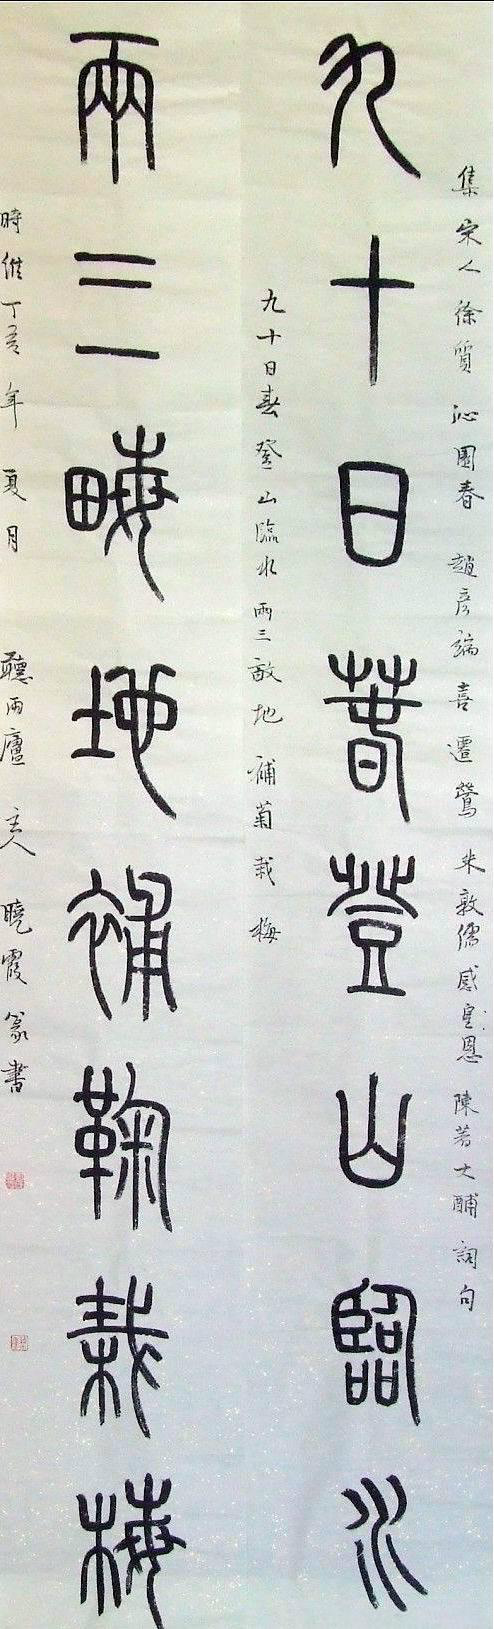 集宋人徐質 沁園春 趙彥端 喜遷鶯 朱敦儒 感皇恩 陳著 大酺 詞句
九十日萅登山臨水
九十日春登山臨水 兩三畝地補菊栽梅
兩三畮地補鞠栽梅
時維丁亥年夏月 聽雨廬主人曉霞篆書